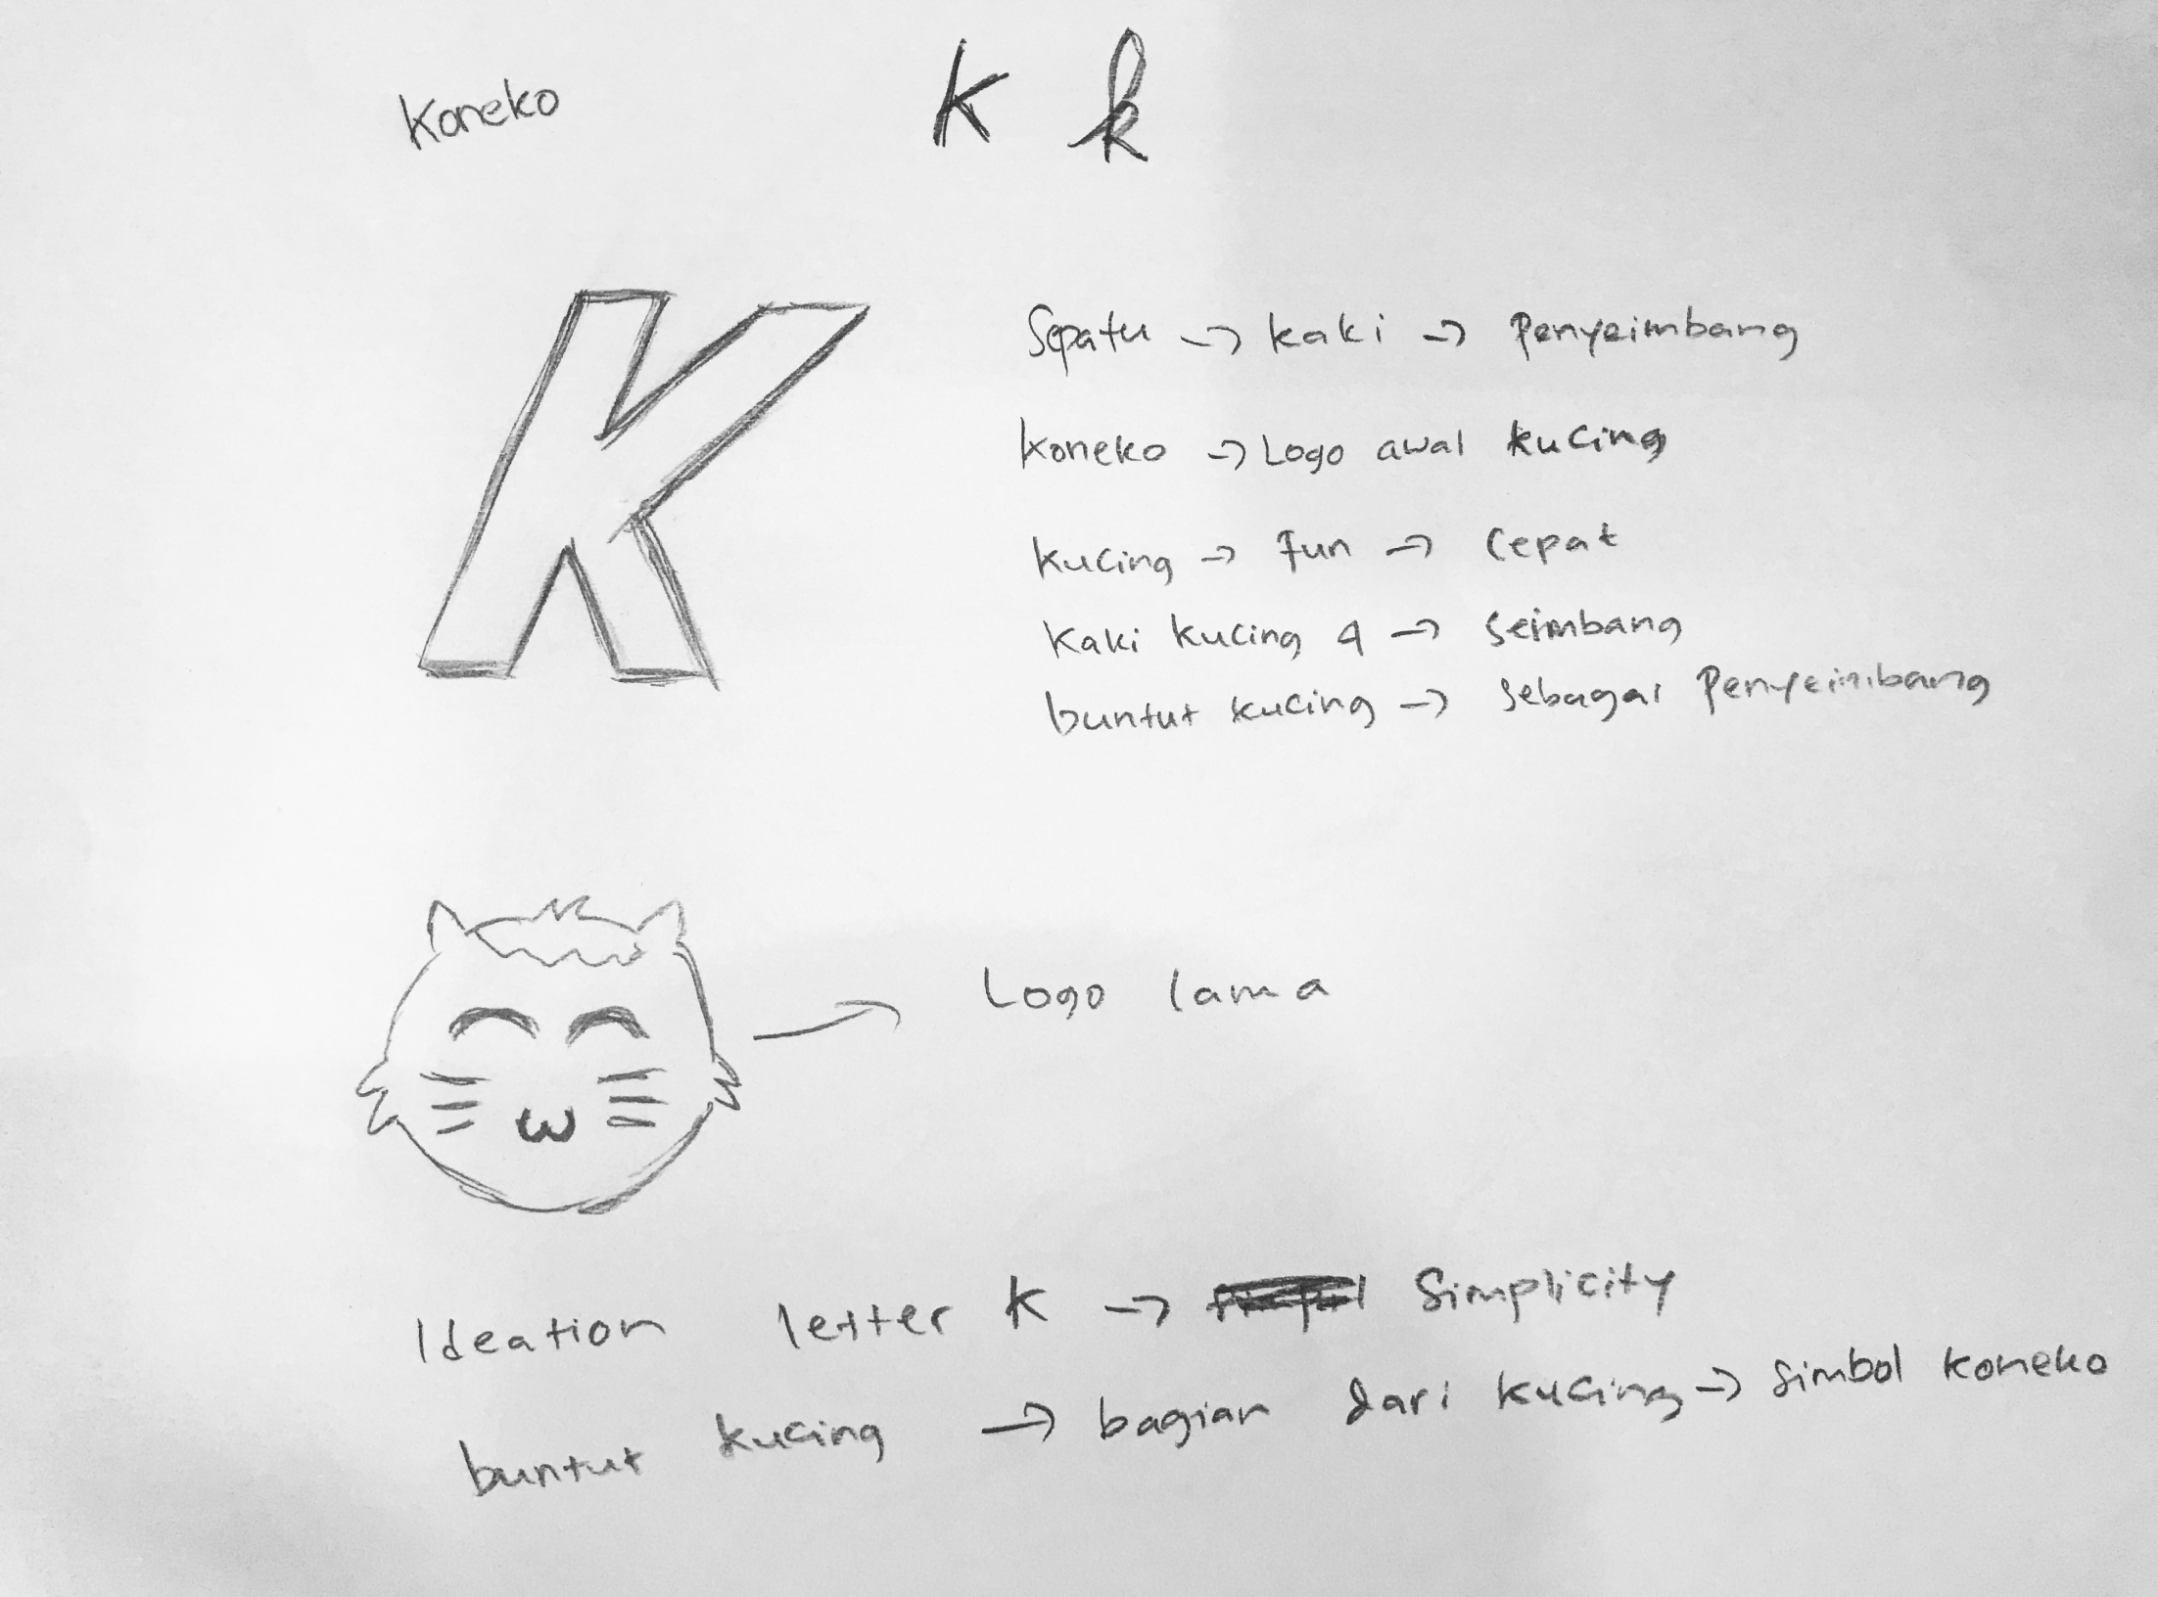 Koneko
K k
K
Sepatu → kaki → Penyeimbang
Koneko → Logo awal kucing
kucing → fun → cepat
Kaki kucing 4 → seimbang
buntut kucing → sebagai Penyeimbang
Logo lama
Ideation letter K → Simplicity
buntut kucing → bagian dari kucing → simbol koneko